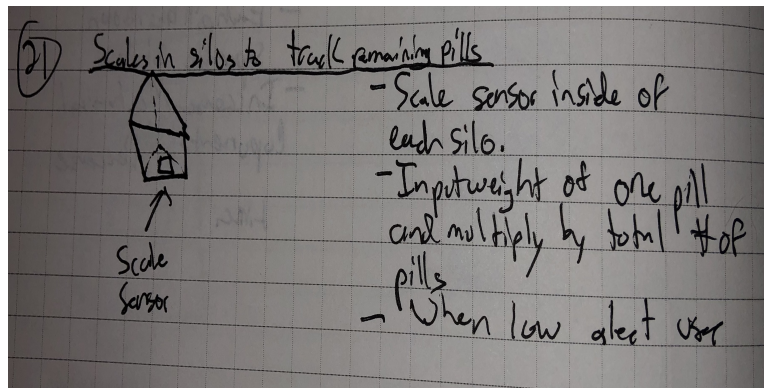 21
Scales in silos to track remaining pills
- Scale sensor inside of
each silo.
- Input weight of one pill
and multiply by total # of
pills
- When low alert user
Scale
Sensor